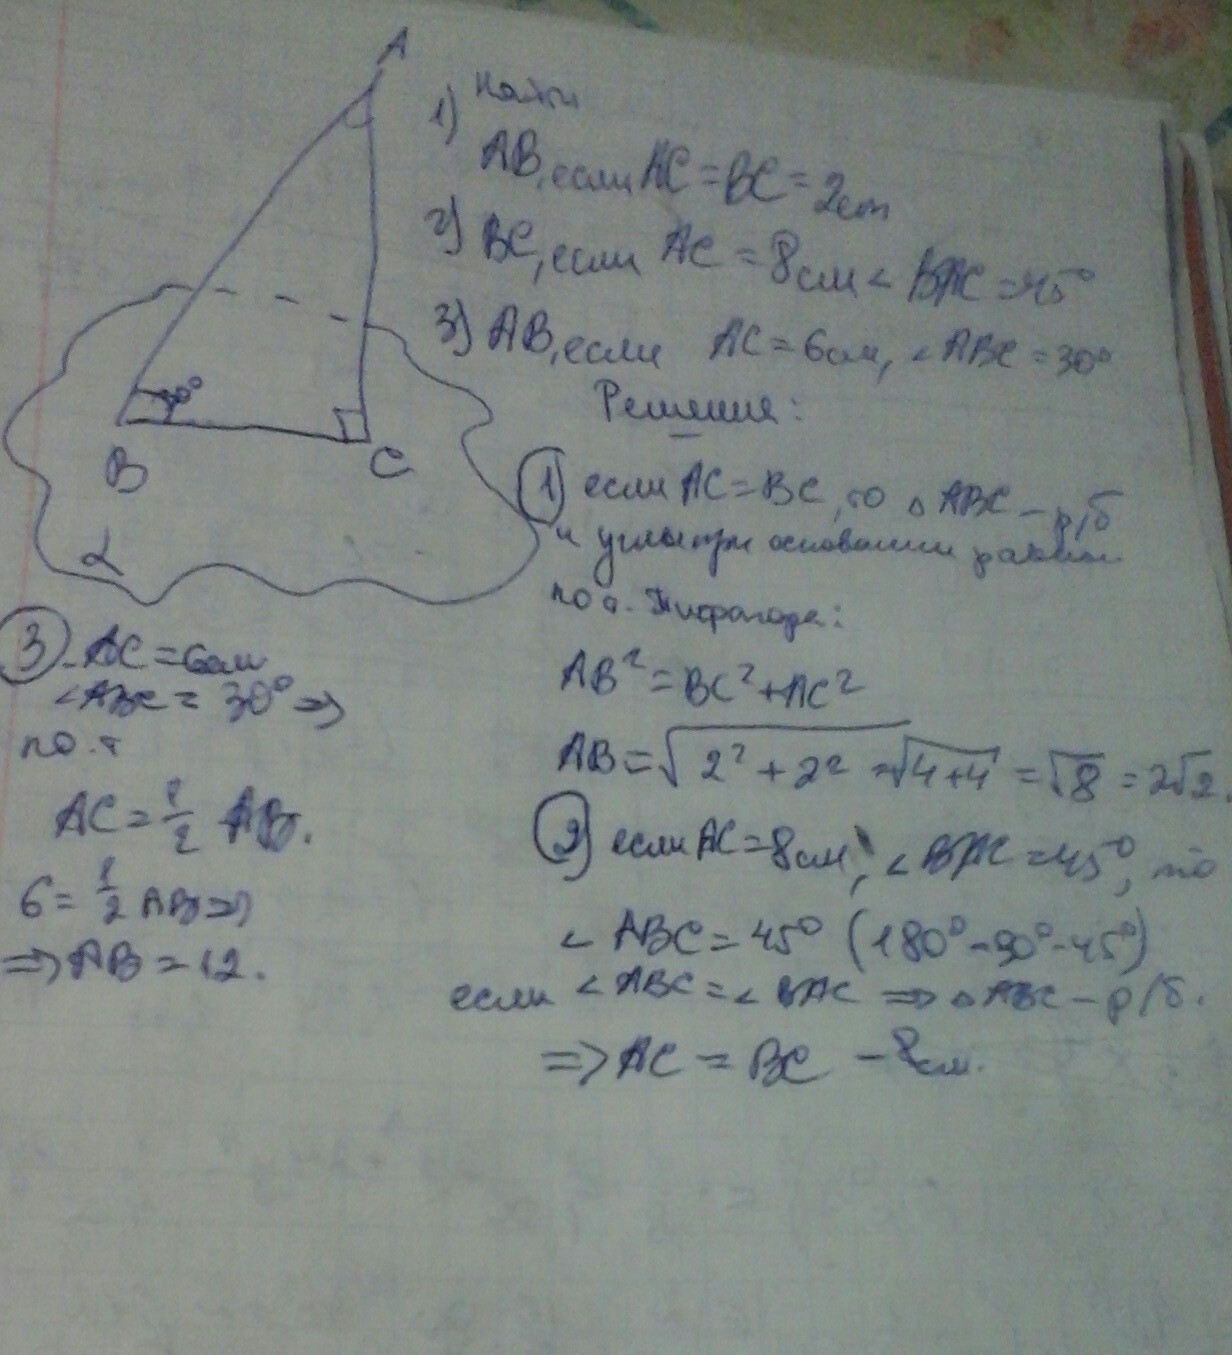 A
30°
B
C
α
1) Найти
AB, если AC = BC = 2cm
2) BC, если AC = 8см ∠ BAC = 45°
3) AB, если AC = 6см, ∠ ABC = 30°
Решение:
1) если AC = BC, то △ ABC – р/б
и углы при основании равны
по т. Пифагора:
AB² = BC² + AC²
AB = √2² + 2² = √4+4 = √8 = 2√2.
2) если AC = 8см, ∠ BAC = 45°, то
∠ ABC = 45° (180° - 90° - 45°)
если ∠ ABC = ∠ BAC ⇒ △ ABC – р/б.
⇒ AC = BC – 8см.
3) - AC = 6см
∠ ABC = 30° ⇒
по т
AC = 1/2 AB.
6 = 1/2 AB ⇒
⇒ AB = 12.